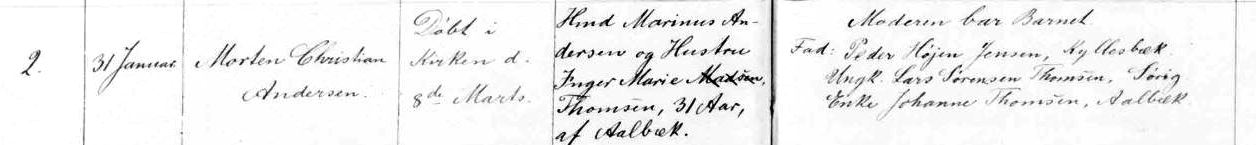 2.
31 Januar
Morten Christian
Andersen.
Døbt i
Kirken d.
8de Marts.
Hmd Marinus An-
dersen og Hustru
Inger Marie Madsen,
Thomsen, 31 Aar,
af Aalbæk.
Moderen bar Barnet.
Fad: Peder Højen Jensen, Kyllesbæk.
Ungk. Lars Sørensen Thomsen, Sørig
Enke Johanne Thomsen, Aalbæk.